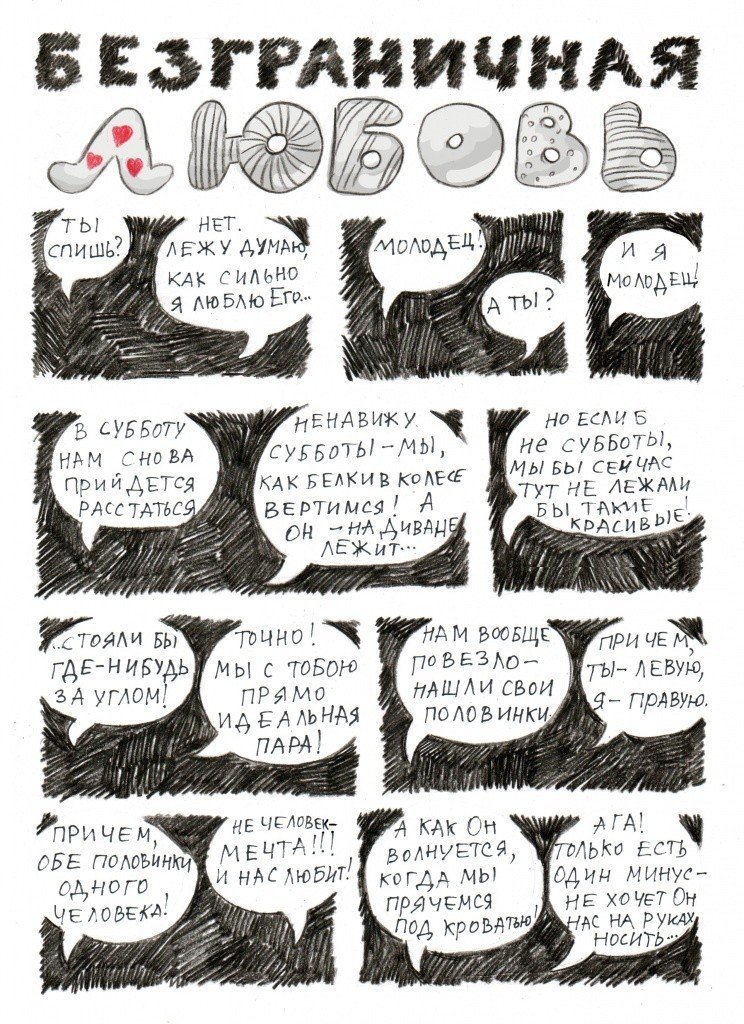 БЕЗГРАНИЧНАЯ
ЛЮБОВЬ
ТЫ
СПИШЬ?
НЕТ.
ЛЕЖУ ДУМАЮ,
КАК СИЛЬНО
Я ЛЮБЛЮ ЕГО...
МОЛОДЕЦ!
А ТЫ?
И Я
МОЛОДЕЦ!
В СУББОТУ
НАМ СНОВА
ПРИЙДЕТСЯ
РАССТАТЬСЯ
НЕНАВИЖУ
СУББОТЫ - МЫ,
КАК БЕЛКИ В КОЛЕСЕ
ВЕРТИМСЯ! А
ОН - НА ДИВАНЕ
ЛЕЖИТ...
НО ЕСЛИ Б
НЕ СУББОТЫ,
МЫ БЫ СЕЙЧАС
ТУТ НЕ ЛЕЖАЛИ
БЫ ТАКИЕ
КРАСИВЫЕ!
...СТОЯЛИ БЫ
ГДЕ-НИБУДЬ
ЗА УГЛОМ!
ТОЧНО!
МЫ С ТОБОЮ
ПРЯМО
ИДЕАЛЬНАЯ
ПАРА!
НАМ ВООБЩЕ
ПОВЕЗЛО -
НАШЛИ СВОИ
ПОЛОВИНКИ.
ПРИЧЕМ,
ТЫ - ЛЕВУЮ,
Я - ПРАВУЮ.
ПРИЧЕМ,
ОБЕ ПОЛОВИНКИ
ОДНОГО
ЧЕЛОВЕКА!
НЕ ЧЕЛОВЕК-
МЕЧТА!!!
И НАС ЛЮБИТ!
А КАК ОН
ВОЛНУЕТСЯ,
КОГДА МЫ
ПРЯЧЕМСЯ
ПОД КРОВАТЬЮ!
АГА!
ТОЛЬКО ЕСТЬ
ОДИН МИНУС -
НЕ ХОЧЕТ ОН
НАС НА РУКАХ
НОСИТЬ...